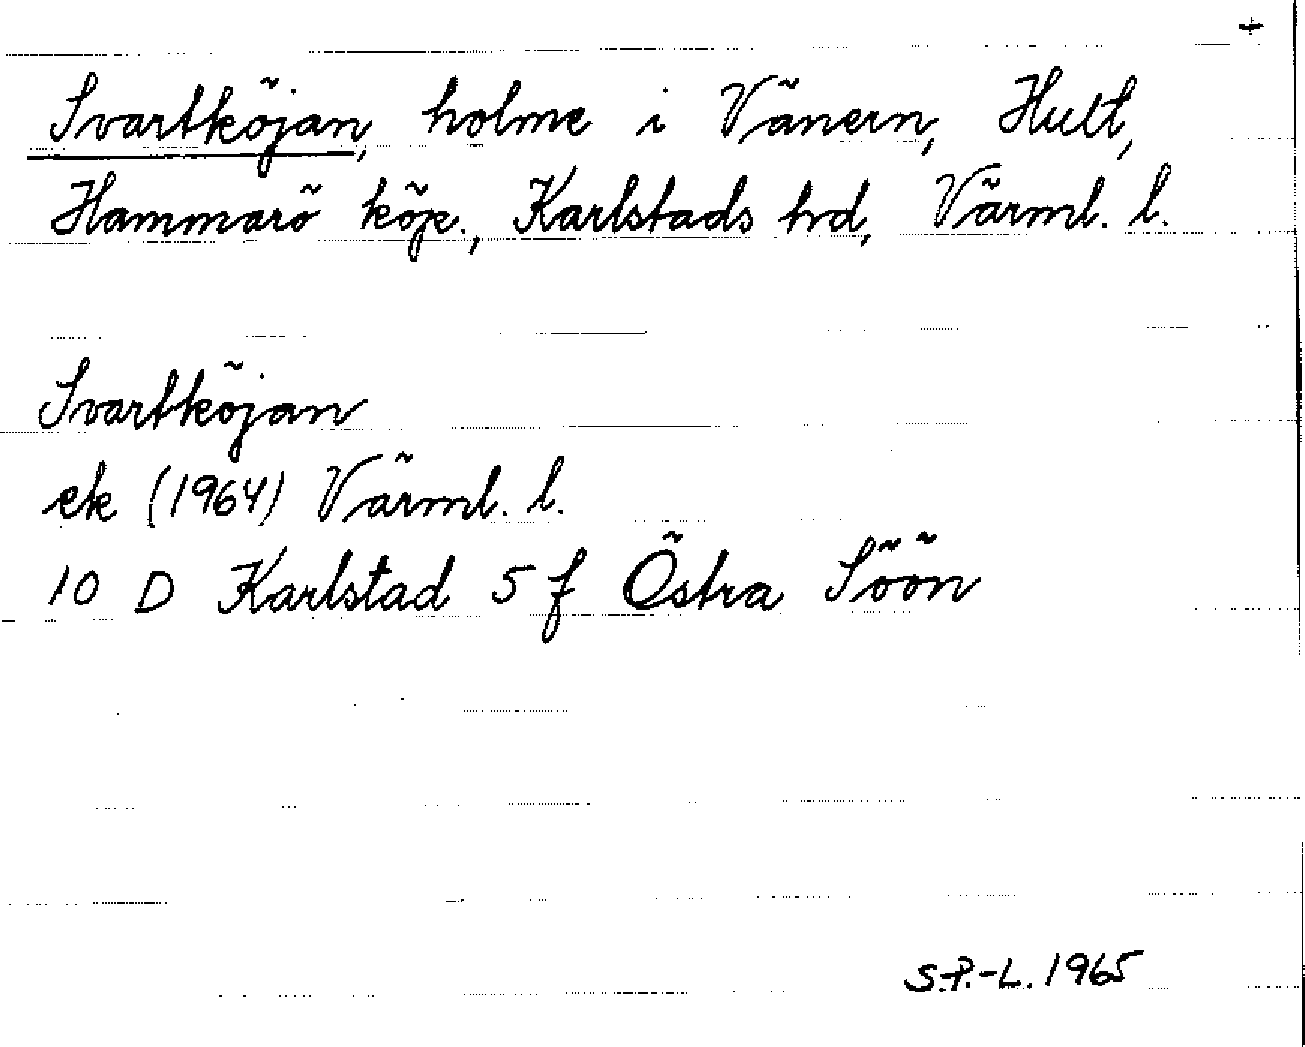 +
Svartköjan, holme i Vänern, Hult,
Hammarö köp., Karlstads hd, Värml. l.
Svartköjan
ek (1964) Värml. l.
10 D Karlstad 5 f Östra Söön
S.P.-L. 1965